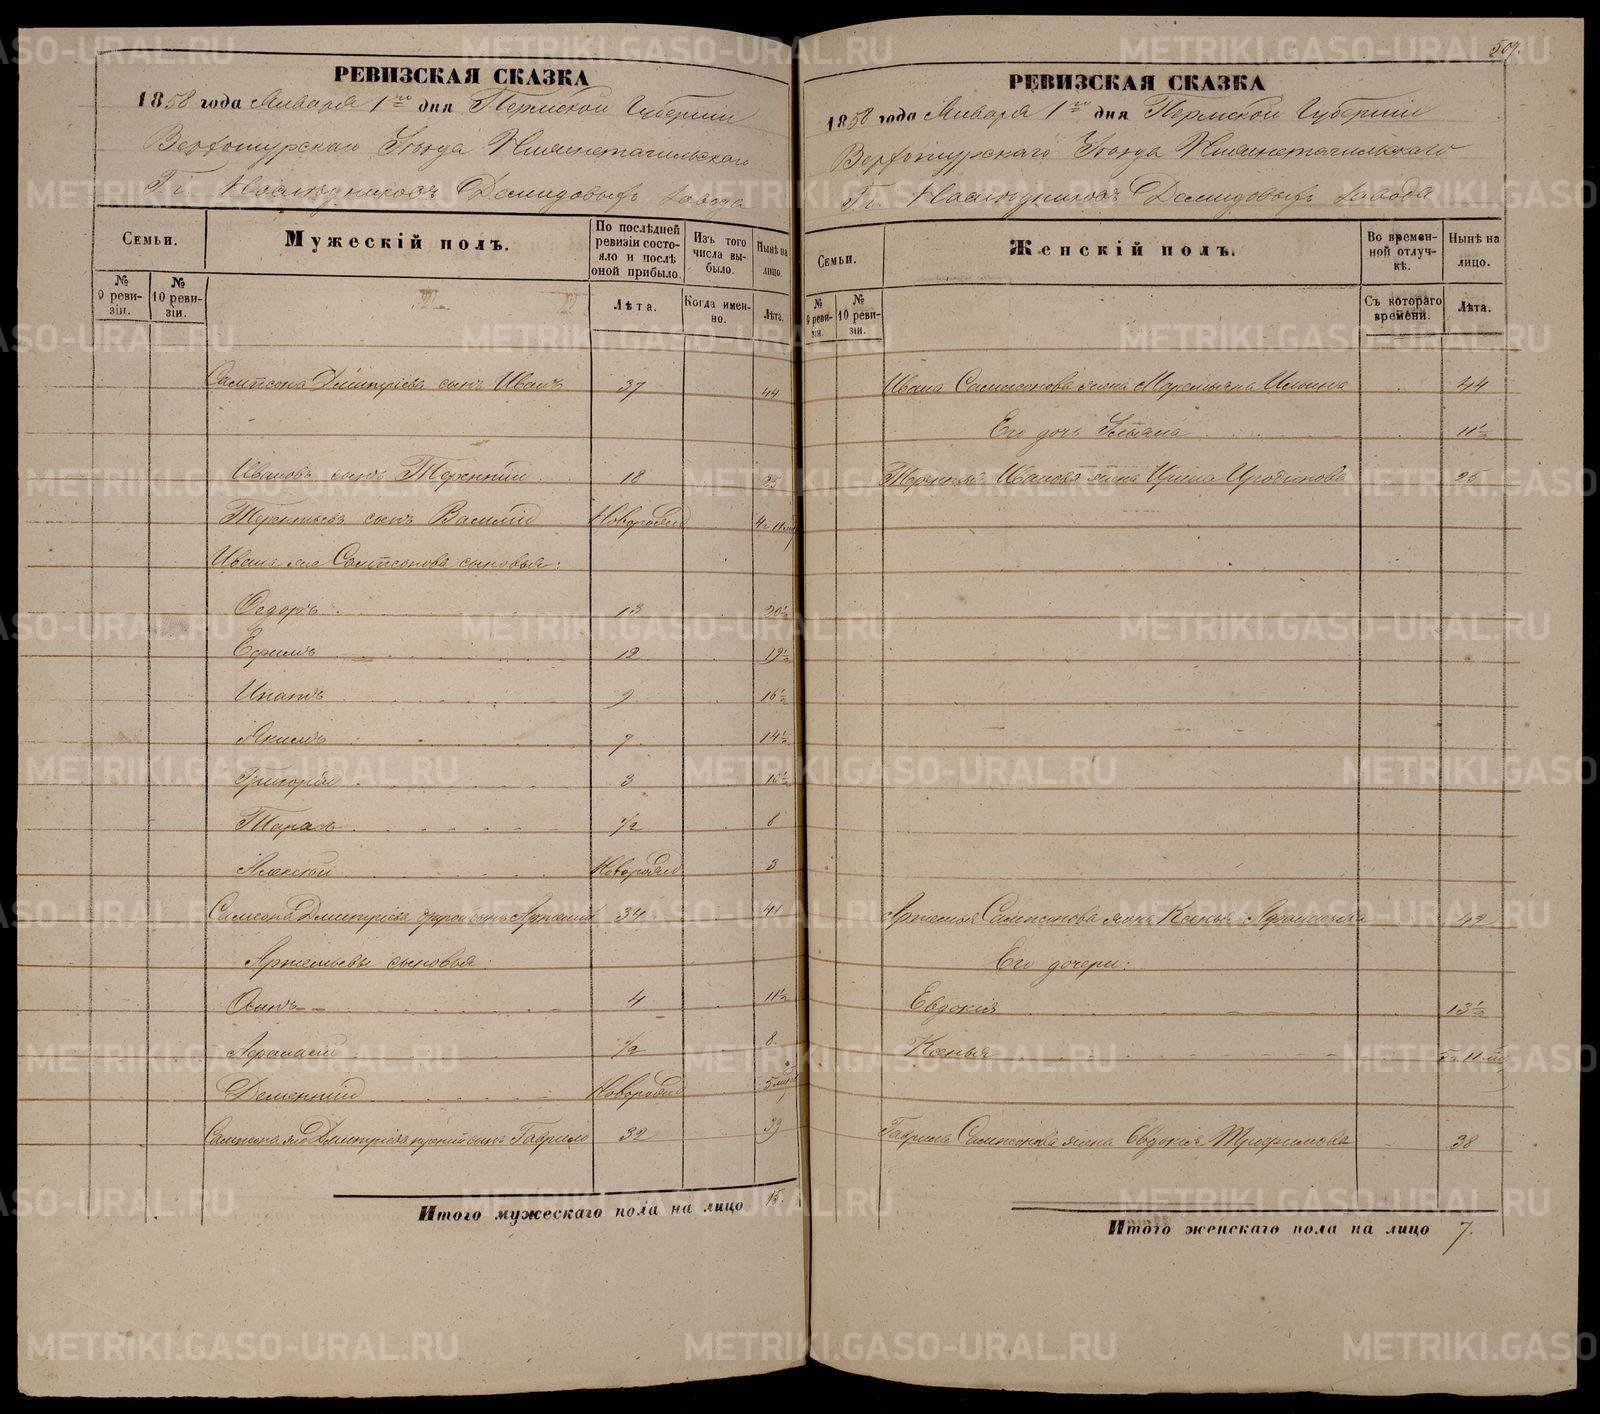 РЕВИЗСКАЯ СКАЗКА
1858 года Января 1го дня Пермской Губернии
Верхотурского Уѣзда Нижнетагильскаго
Гг. Наслѣдниковъ Демидовыхъ завода
Семьи.
Мужескій полъ.
По послѣдней ревизіи состояло и послѣ оной прибыло.
Изъ того числа выбыло.
Нынѣ на лицо.
№ 9 ревизіи.
№ 10 ревизіи.
Лѣта.
Когда именно.
Лѣта.
Сампсона Дмитріева сынъ Иванъ 37 44
Ивановъ сынъ Терентій 18 25
Терентьевъ сынъ Василій Новорожд 4 г 11 мѣ
Ивана же Сампсонова сыновья:
Ѳедоръ 13 20½
Ефимъ 12 19½
Игнатъ 9 16½
Якимъ 7 14½
Григорій 3 10½
Тарасъ ½ 8
Алексѣй Новорожд 3
Сампсона Дмитріева другой сынъ Артемій 34 41
Артемьевы сыновья:
Осипъ 4 11½
Афанасій ½ 8
Дементій Новорожд 5 мѣс
Сампсона же Дмитріева третій сынъ Гаврило 32 39
Итого мужескаго пола на лицо 15.
509.
РЕВИЗСКАЯ СКАЗКА
1858 года Января 1го дня Пермской Губернии
Верхотурскаго Уѣзда Нижнетагильскаго
Гг. Наслѣдниковъ Демидовыхъ завода
Семьи.
Женскій полъ.
Во временной отлучкѣ.
Нынѣ на лицо.
№ 9 ревизіи.
№ 10 ревизіи.
Съ котораго времени.
Лѣта.
Ивана Сампсонова жена Маремьяна Ильина 44
Его дочь 11½
Терентья Иванова жена Ирина 25
Артемья Сампсонова жена Ксенья Афанасьева 42
Его дочери:
Евдокія 13½
Ксенья 5 г 11 мѣ
Гаврила Сампсонова жена Евдокія Трифонова 38
Итого женскаго пола на лицо 7.
METRIKI.GASO-URAL.RU